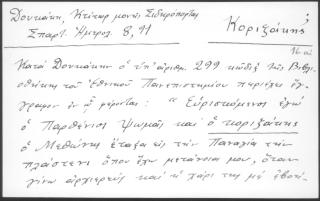 Δουκάκη, Κτίτωρ μονῆς Σιδηροπορτίας
Σπαρτ. Ἡμερολ. 8, 11
Κοριζάκης
16 αἰ
Κατὰ Δουκάκην ὁ ὑπ' ἀριθμ. 299 κώδιξ τῆς Βιβλι-
οθήκης τοῦ Ἐθνικοῦ Πανεπιστημίου περιέχει ἔγ-
γραφον ἐν ᾧ φέρονται: "Εὑρισκόμενος ἐγὼ
ὁ Παρθένιος Ψωμᾶς καὶ ὁ κοριζάκης
ὁ Μεθώνης ἔταξα εἰς τὴν Παναγία τὴν
πλάστενα ὅπου ἔχω μετάνοιά μου, ὅταν
γίνω ἀρχιερεὺς καὶ ἡ χάρι της μὲ ἐβοή-